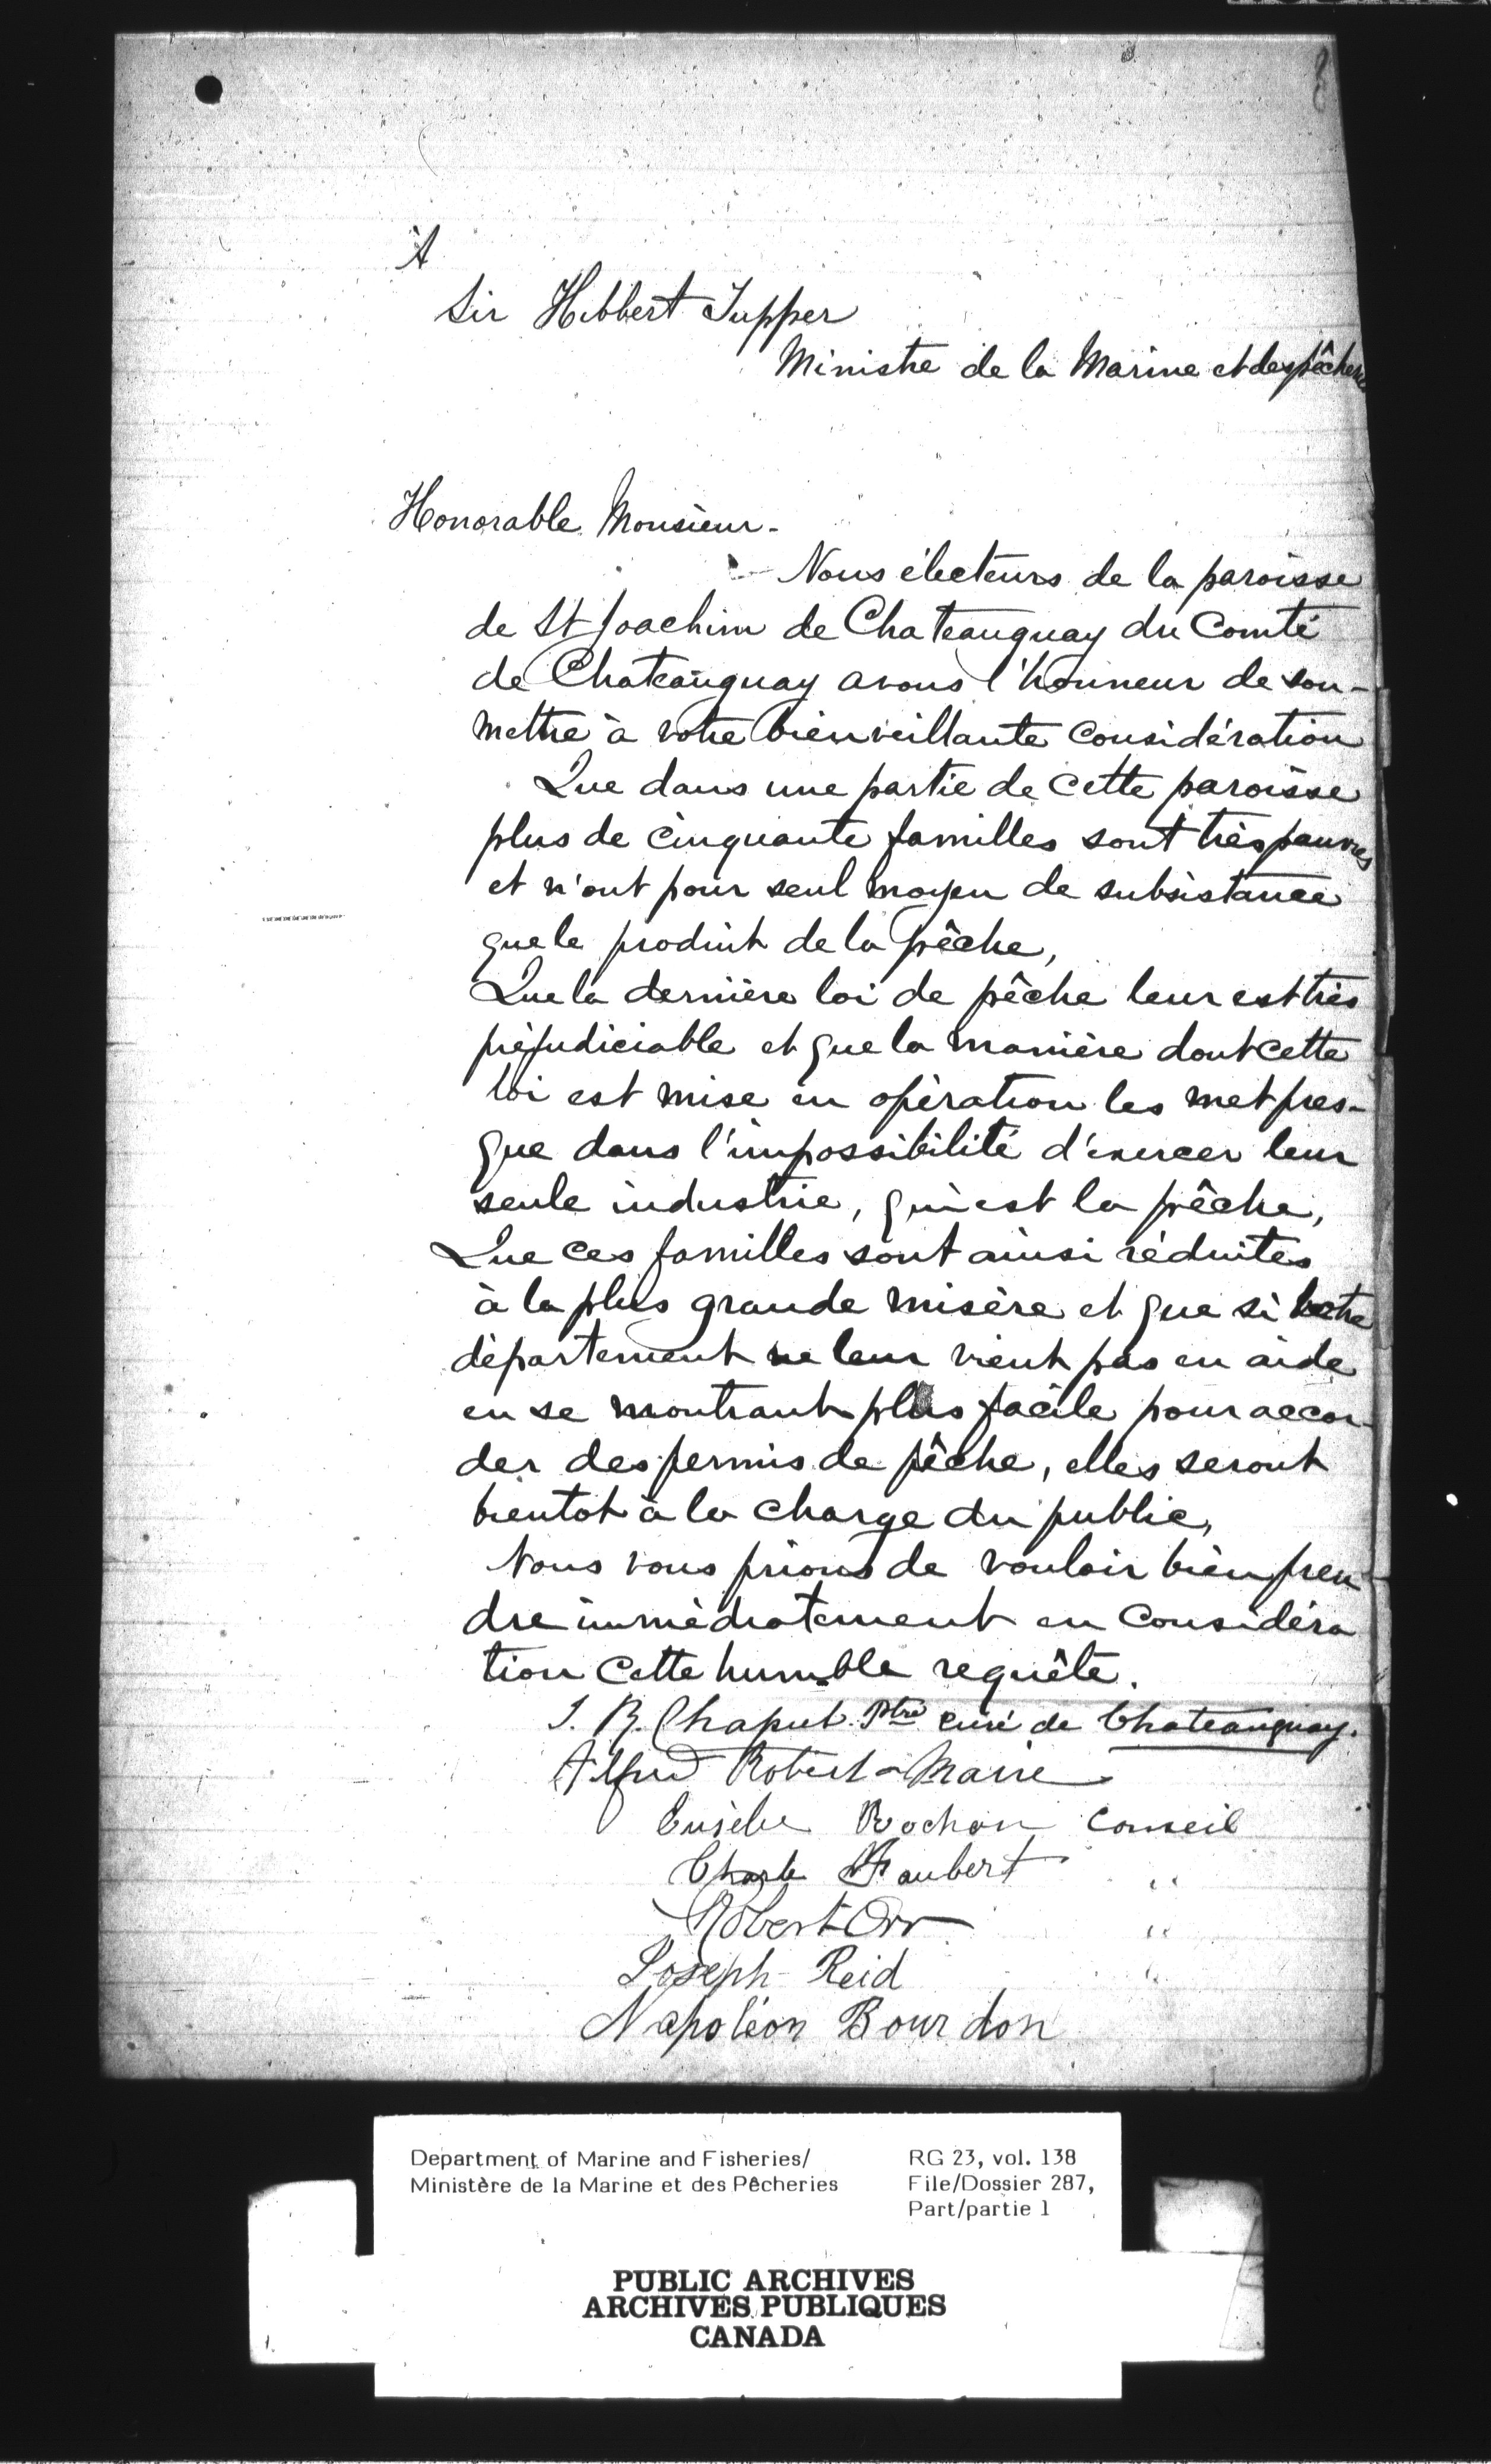 À
Sir Hibbert Tupper
Ministre de la Marine et des pêcheries
Honorable Monsieur -
Nous électeurs de la paroisse
de St Joachim de Chateauguay du Comté
de Chateauguay avons l'honneur de sou-
mettre à votre bienveillante considération
Que dans une partie de cette paroisse
plus de cinquante familles sont très pauvres
et n'ont pour seul moyen de subsistance
que le produit de la pêche,
Que la dernière loi de pêche leur est très
préjudiciable et que la manière dont cette
loi est mise en opération les met pres-
que dans l'impossibilité d'exercer leur
seule industrie, qui est la pêche,
Que ces familles sont ainsi réduites
à la plus grande misère et que si votre
département ne leur vient pas en aide
en se montrant plus facile pour accor-
der des permis de pêche, elles seront
bientot à la charge du public,
Nous vous prions de vouloir bien pren
dre immédiatement en considéra
tion cette humble requête.
J. B. Chaput Ptre curé de Chateauguay.
Alfred Robert Maire
Eusèbe Rochon Conseil
Charle Faubert "
Robert Orr "
Joseph Reid "
Napoléon Bourdon
Department of Marine and Fisheries/
Ministère de la Marine et des Pêcheries
RG 23, vol. 138
File/Dossier 287,
Part/partie 1
PUBLIC ARCHIVES
ARCHIVES PUBLIQUES
CANADA